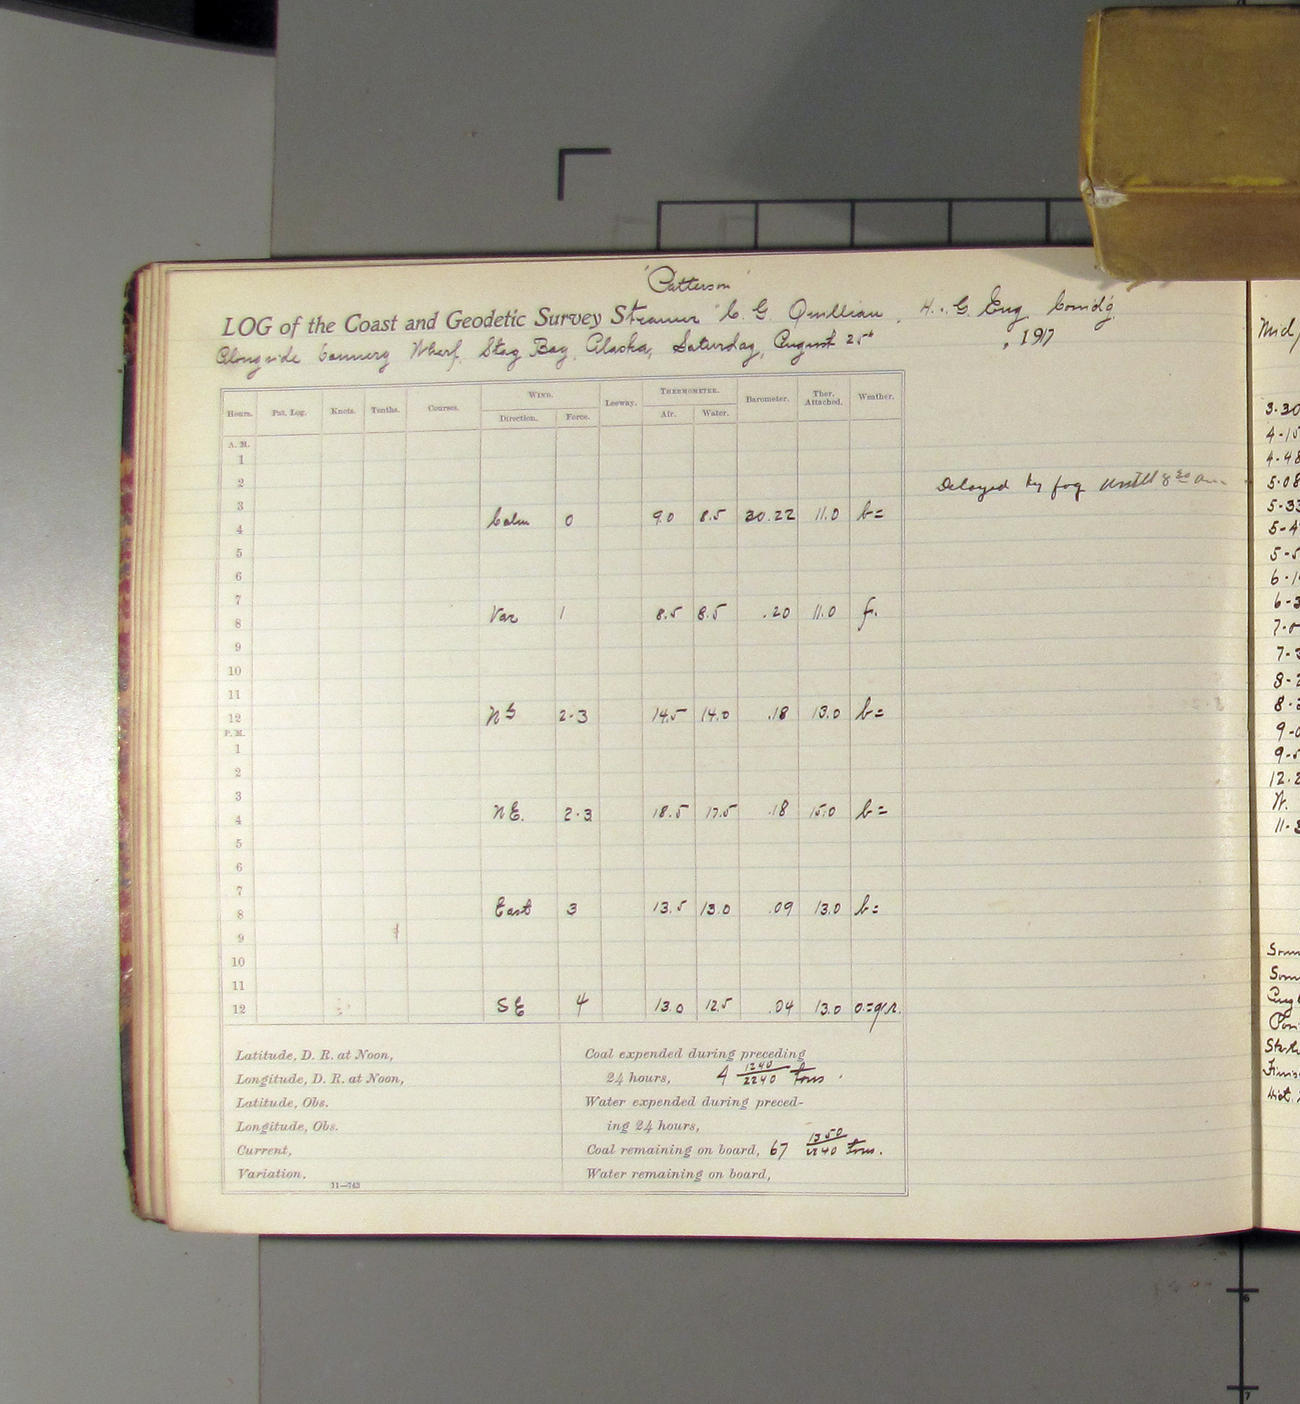 "Patterson"
LOG of the Coast and Geodetic Survey Steamer C. G. Quillian, H. & G. Eng Comd'g
Alongside Cannery Wharf, Stag Bay, Alaska, Saturday, August 25th, 1917
Hours. Pat. Log. Knots. Tenths. Courses. WIND. Leeway. THERMOMETER. Barometer. Ther. Attached. Weather.
Direction. Force. Air. Water.
A. M.
1
2 Delayed by fog until 8 30 am
3
4 Calm 0 9.0 8.5 30.22 11.0 b=
5
6
7
8 Var 1 8.5 8.5 .20 11.0 f.
9
10
11
12 2-3 14.5 14.0 .18 13.0 b=
P. M.
1
2
3
4 NE. 2-3 18.5 17.5 .18 15.0 b=
5
6
7
8 East 3 13.5 13.0 .09 13.0 b=
9
10
11
12 SE 4 13.0 12.5 .04 13.0 o=q.r.
Latitude, D. R. at Noon,
Longitude, D. R. at Noon,
Latitude, Obs.
Longitude, Obs.
Current,
Variation,
11—743
Coal expended during preceding
24 hours, 4 1240/2240 tons.
Water expended during preced-
ing 24 hours,
Coal remaining on board, 67 1350/2240 tons.
Water remaining on board,
Mid
3-30
4-15
4-48
5-08
5-33
8-2
12-2
N.
6
7